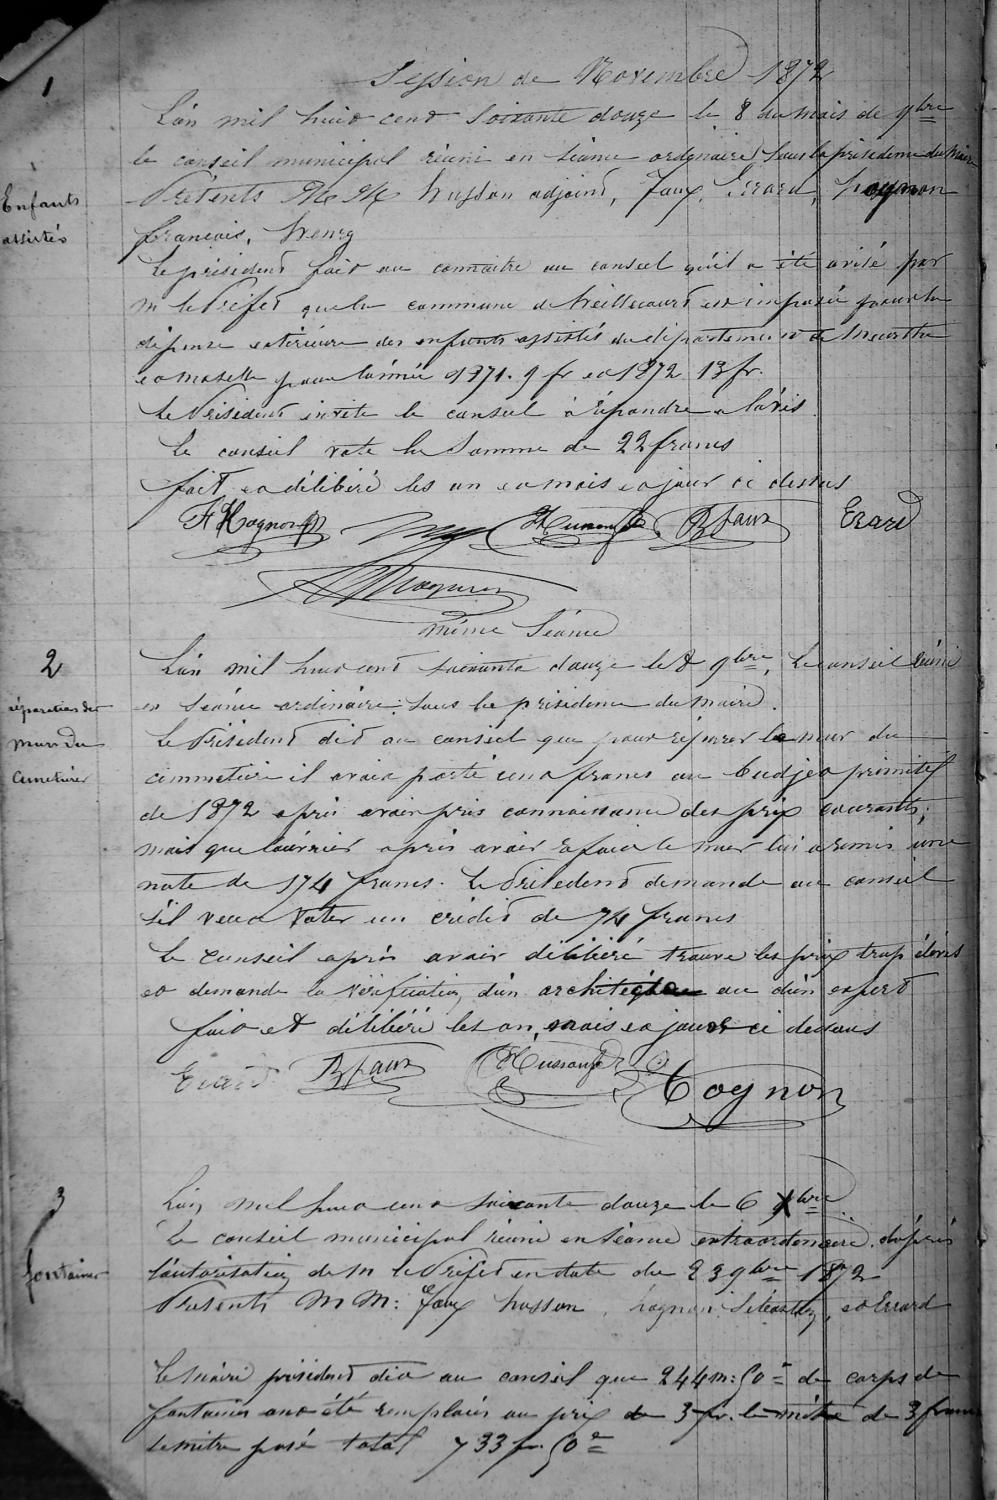 Session de Novembre 1872
1
L'an mil huit cent soixante douze le 8 du mois de 9bre
le conseil municipal réuni en séance ordinaire sous la présidence du Maire
Enfants
assistés
Présents MM Husson adjoint, Faux, Errard, Hognon
françois, henry
Le président fait au connaitre au conseil qu'il a été avisé par
M le Préfet que la commune de est imposée pour la
dépense extérieure des enfants assistés du département de Meurthe
et Moselle pour l'année 1871. 9 fr et 1872 13 fr.
Le Président invite le conseil à répondre a l'avis
Le conseil vote la Somme de 22 francs
fait et délibéré les an et mois et jour ci dessus
F Hognon Husson B faux Erard
Hognon
même Séance
2
L'an mil huit cent soixante douze le 8 9bre, le conseil réuni
en séance ordinaire sous la présidence du maire.
réparation du
mur du
Cimetière
Le Président dit au conseil que pour réparer le mur du
cimmetière il avait porté cent francs au budjet primitif
de 1872 après avoir pris connaissance des prix courants;
mais que l'ouvrier après avoir refait le mur lui a remis une
note de 174 francs. Le Président demande au conseil
s'il veut voter un crédit de 74 francs
Le conseil après avoir délibéré trouve les prix trop élevés
et demande la vérification d'un architecte ou d'un expert
fait et délibéré les an, mois et jour ci dessus
Erard B faux Husson Hognon
3
fontaines
L'an mil huit cent soixante douze le 6 Xbre
Le conseil municipal réuni en séance extraordinaire. d'après
l'autorisation de M le Préfet en date du 23 9bre 1872
Présents MM: Faux husson, hognon Sébastien, et Errard
Le Maire président dit au conseil que 244 m: 50 c de corps de
fontaines ont été remplacés au prix de 3 fr. le mètre de 3 francs
le mètre posé total 733 fr. 50 c